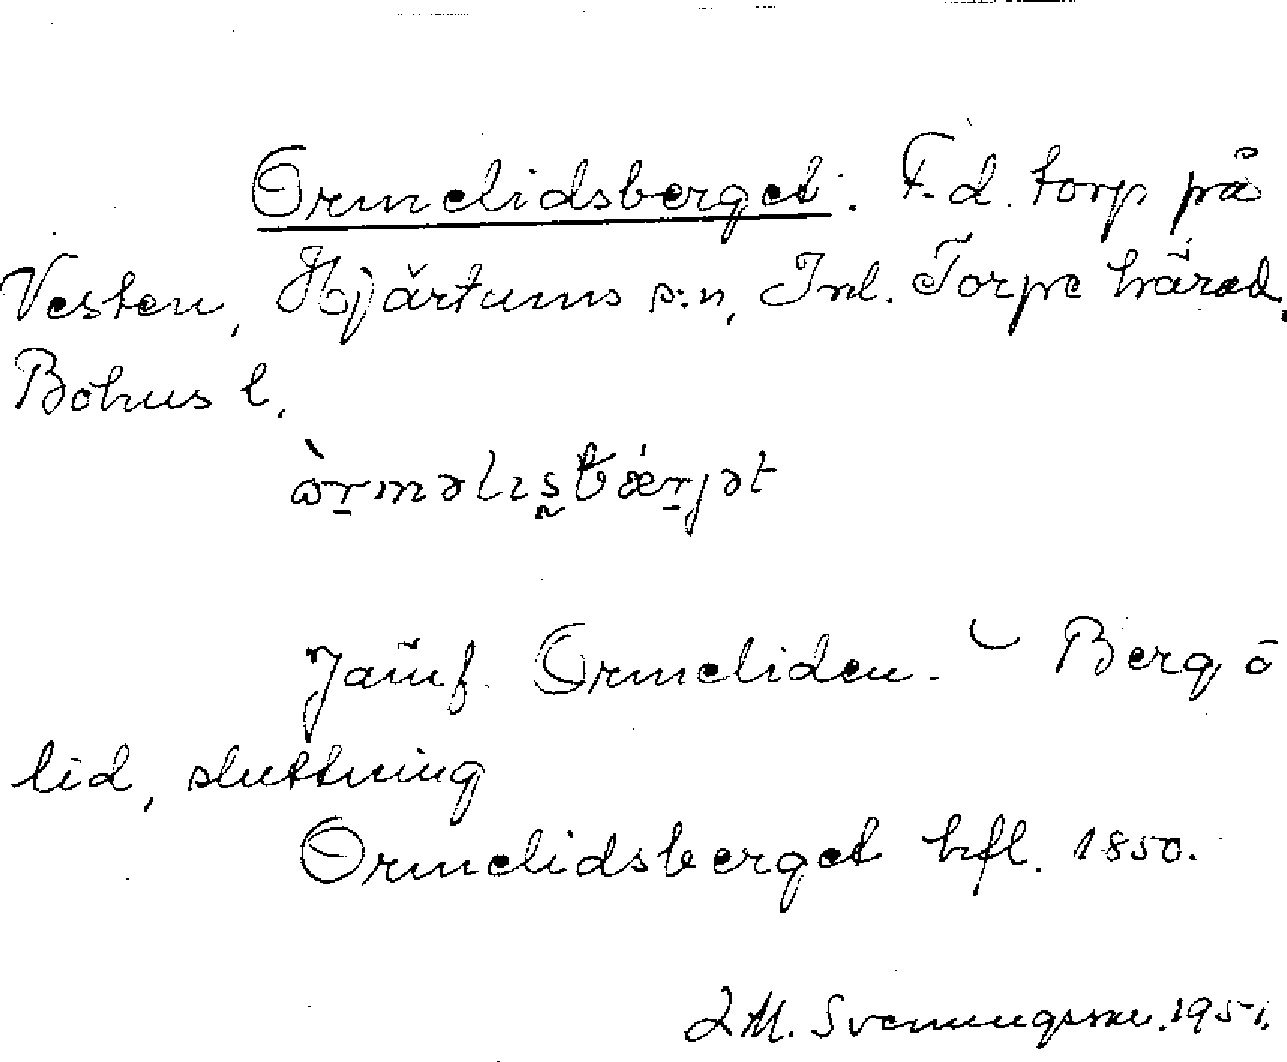 Ormelidsberget: F.d. torp på
Vesten, Hjärtums s:n, Inl. Torpe härad,
Bohus l.
ὼr̠məlıs̰bǽr̠jət
Jämf. Ormeliden. – Berg o
lid, sluttning
Ormelidsberget hfl. 1850.
M. Svenungsson. 1951.